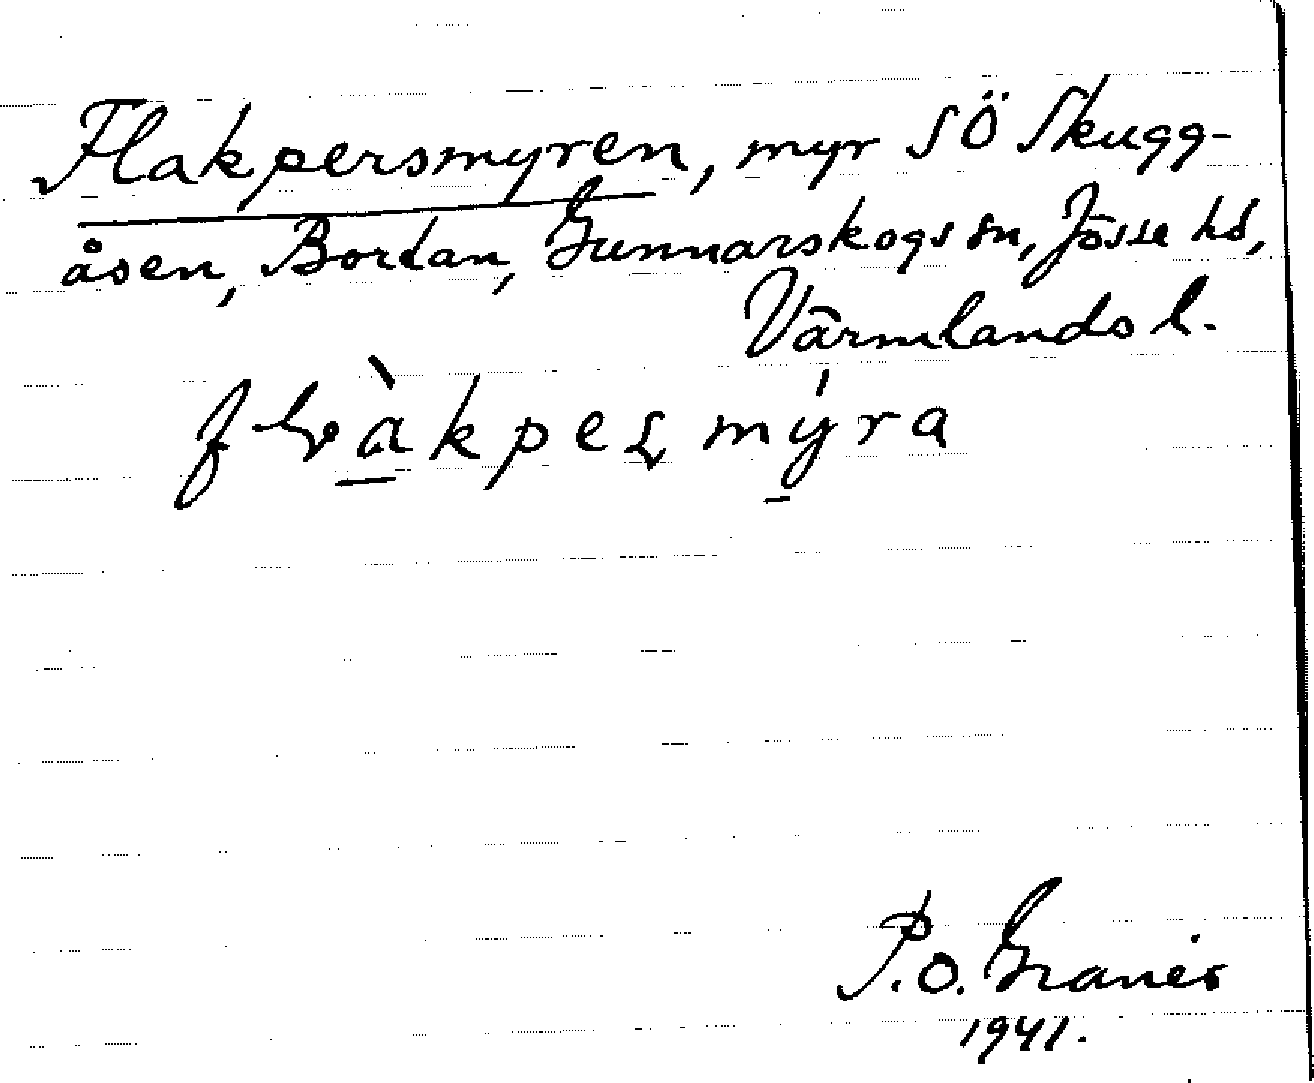 Flakpersmyren, myr SÖ Skugg-
åsen, Bortan, Gunnarskogs sn, Jösse hd,
Värmlands l.
P.O. Granér
1941.